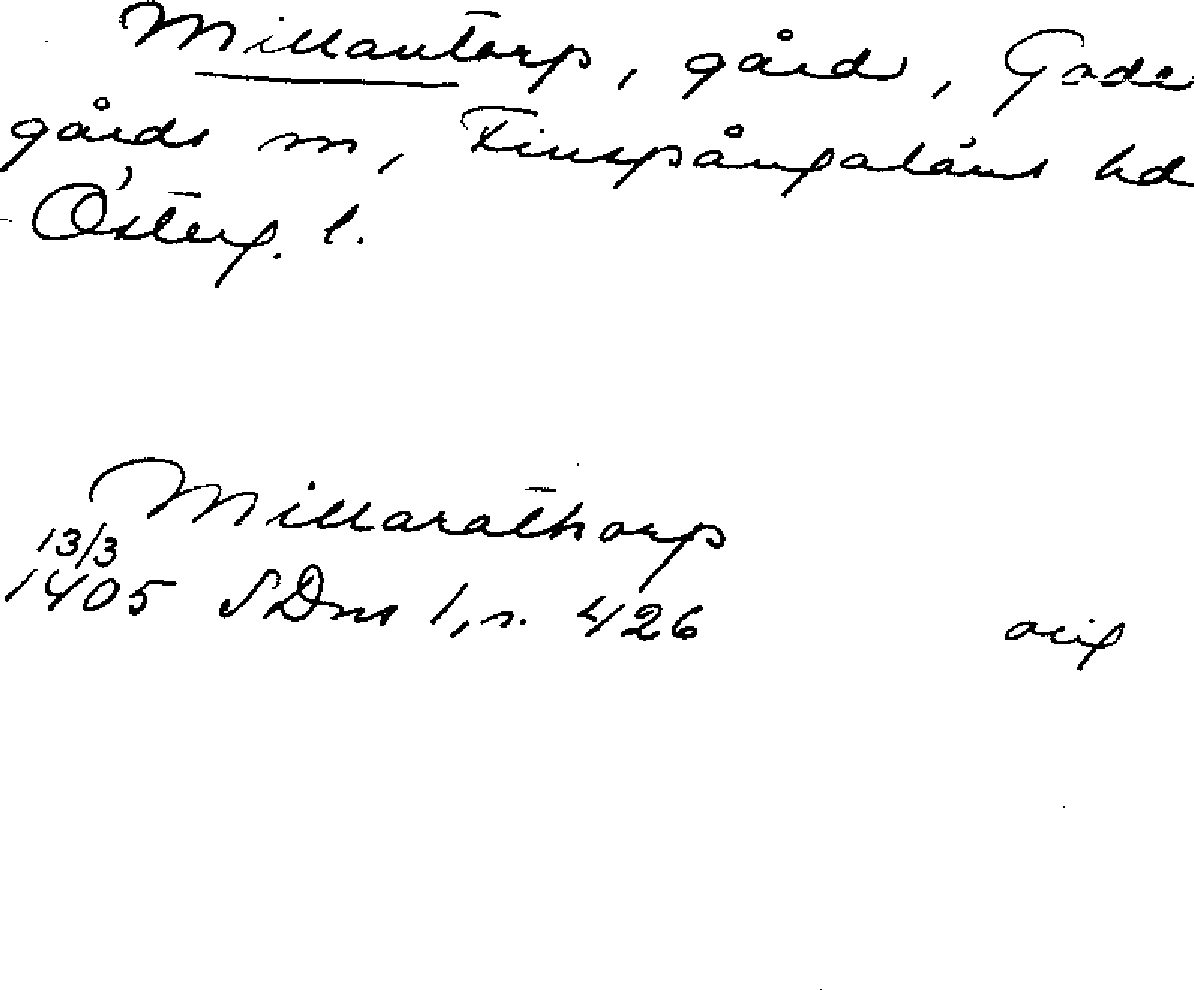 Millantorp, gård, Gode
gårds sn, Finspångaläns hd
Österg. l.
Millarathorp
13/3
1405 SDns 1, s. 426 orig